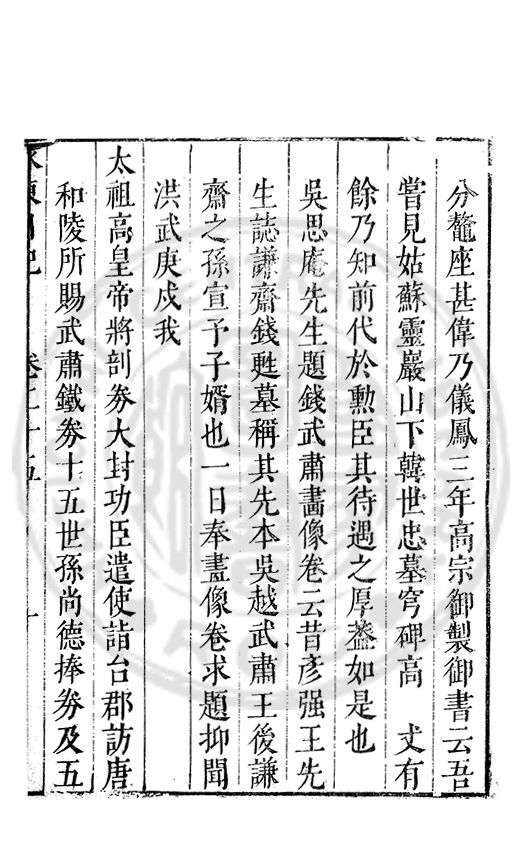 分鼇座甚偉乃儀鳳三年高宗御製御書云吾
嘗見姑蘇靈巖山下韓世忠墓穹碑高　丈有
餘乃知前代於勲臣其待遇之厚葢如是也
吳思庵先生題錢武肅畫像卷云昔彥强王先
生誌謙齋錢甦墓稱其先本吳越武肅王後謙
齋之孫宣予子婿也一日奉畫像卷求題抑聞
洪武庚戍我
太祖高皇帝將剖券大封功臣遣使詣台郡訪唐
和陵所賜武肅鐵券十五世孫尚德捧券及五